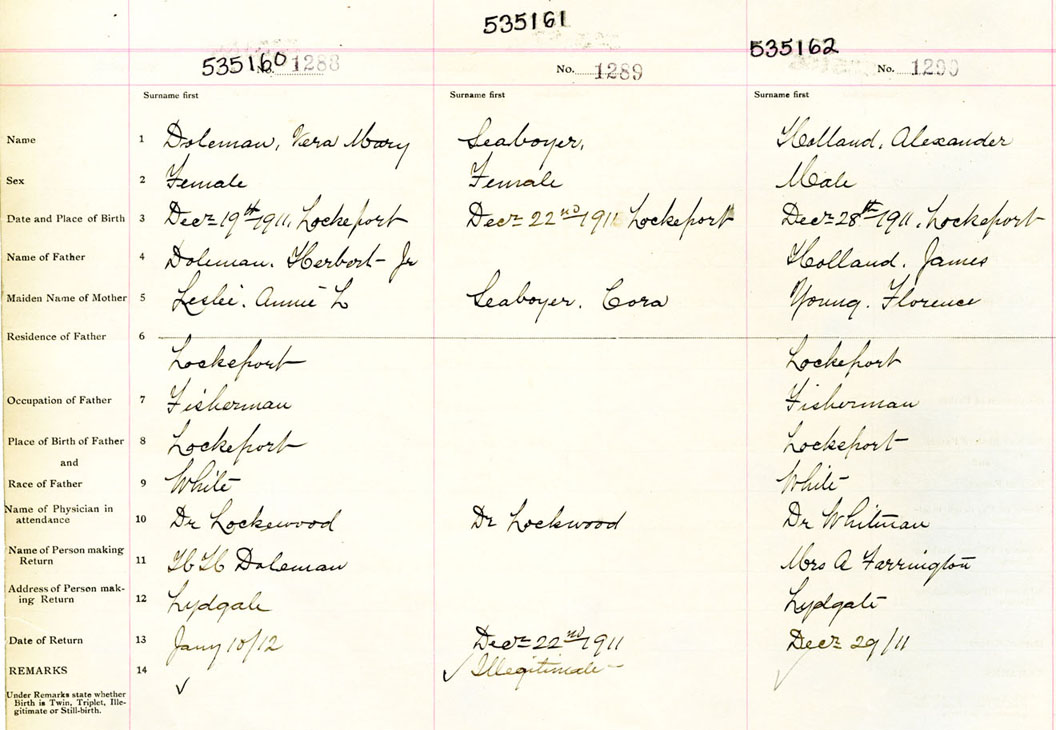 535161
535160 535162
No. 1288 No. 1289 No. 1290
Surname first Surname first Surname first
Name 1 Doleman, Vera Mary Seaboyer, Holland, Alexander
Sex 2 Female Female Male
Date and Place of Birth 3 Decr 19th 1911, Lockeport Decr 22nd 1911 Lockeport Decr 28th 1911, Lockeport
Name of Father 4 Doleman. Herbert Jr Holland. James
Maiden Name of Mother 5 Leslie. Annie L Seaboyer. Cora Young. Florence
Residence of Father 6
Lockeport Lockeport
Occupation of Father 7 Fisherman Fisherman
Place of Birth of Father 8 Lockeport Lockeport
and
Race of Father 9 White White
Name of Physician in
attendance 10 Dr Lockewood Dr Lockwood Dr Whitman
Name of Person making
Return 11 H H Doleman Mrs A Farrington
Address of Person mak-
ing Return 12 Lydgate Lydgate
Date of Return 13 Jany 10/12 Decr 22nd 1911 Decr 29/11
REMARKS 14 ✓ ✓ Illegitimate ✓
Under Remarks state whether
Birth is Twin, Triplet, Ille-
gitimate or Still-birth.